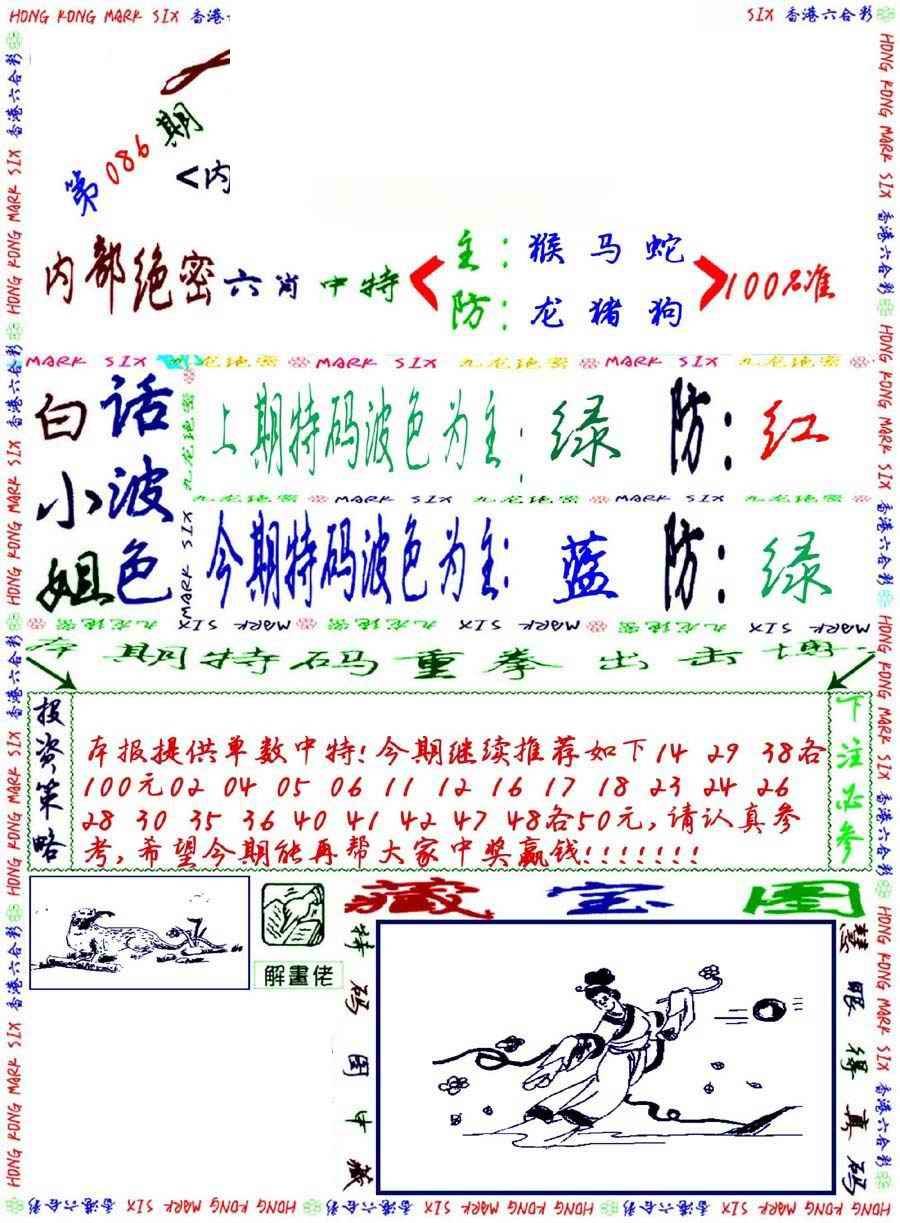 HONG KONG MARK SIX 香港
SIX 香港六合彩
第086期
<内
内部绝密六肖中特
主：猴马蛇
防：龙猪狗
100%准
MARK SIX 九龙绝密 MARK SIX 九龙绝密 MARK SIX 九龙绝密
白话
小波
姐色
上期特码波色为主：绿 防：红
九龙绝密 MARK SIX 九龙绝密 MARK SIX 九龙绝密
今期特码波色为主：蓝 防：绿
MARK SIX 九龙绝密 MARK SIX 九龙绝密 MARK SIX
本期特码重拳出击
投资策略
本报提供单数中特!今期继续推荐如下14 29 38各
100元02 04 05 06 11 12 16 17 18 23 24 26
28 30 35 36 40 41 42 47 48各50元,请认真参
考,希望今期能再帮大家中奖赢钱!!!!!!!
下注必参
解畫佬
藏宝图
特码图中藏
慧眼得真码
HONG KONG MARK SIX 香港六合彩